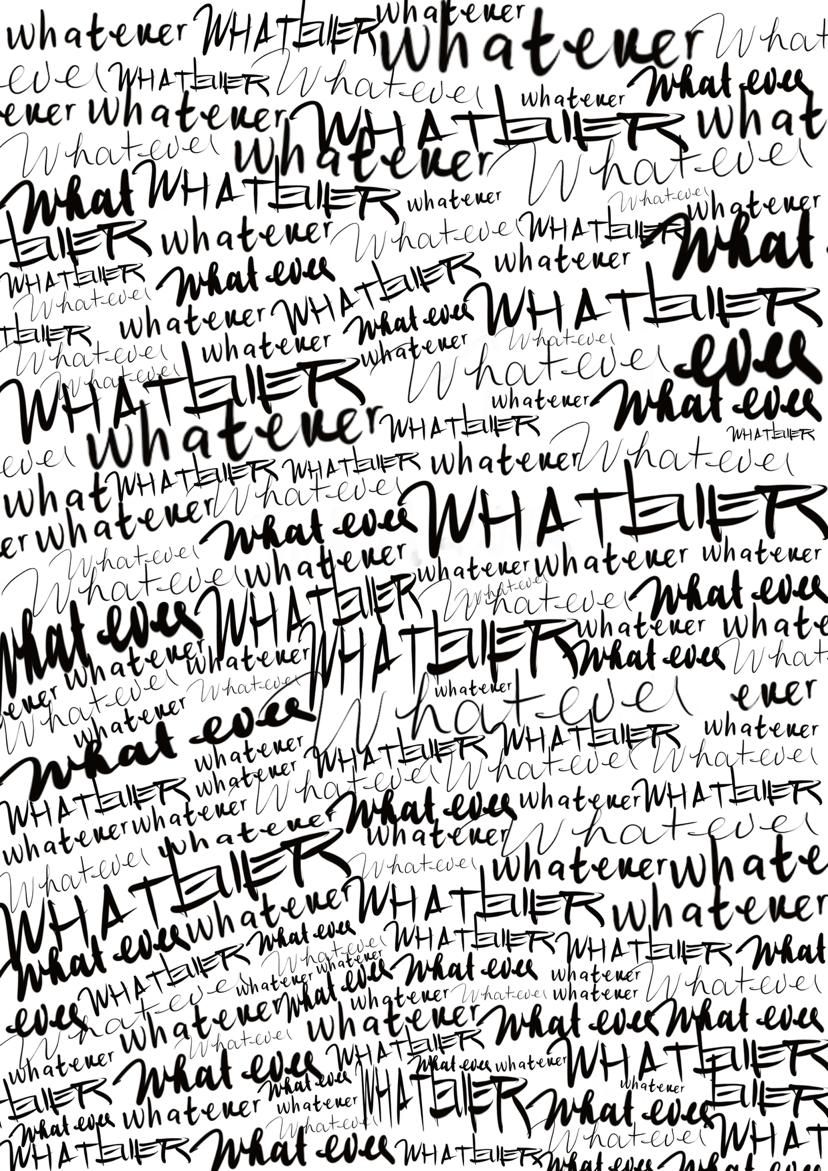 whatever WHATEVER whatever whatever What
ever WHATEVER Whatever whatever What ever
ever whatever WHATEVER what
Whatever whatever Whatever
What WHATEVER whatever Whatever whatever
EVER whatever Whatever WHATEVER What
WHATEVER What ever WHATEVER whatever
Whatever whatever WHATEVER What ever WHATEVER
EVER whatever whatever Whatever
Whatever Whatever Whatever ever
WHATEVER whatever What ever
whatever WHATEVER WHATEVER
ever WHATEVER WHATEVER whatever Whatever
what Whatever WHATEVER
er whatever What ever
Whatever whatever whatever whatever whatever
Whatever WHATEVER Whatever Whatever What ever
What ever WHATEVER whatever whate
whatever whatever What ever What
ever Whatever Whatever whatever Whatever ever
whatever What ever whatever
What ever whatever WHATEVER WHATEVER
WHATEVER whatever Whatever Whatever Whatever
whatever whatever What ever whatever WHATEVER
whatever whatever Whatever
Whatever WHATEVER Whatever whatever whate
WHATEVER whatever WHATEVER whatever
What ever What ever WHATEVER WHATEVER What
WHATEVER Whatever whatever What ever whatever Whatever
ever Whatever whatever What ever whatever Whatever whatever
whatever Whatever whatever What ever What ever
whatever What ever WHATEVER What ever whatever WHATEVER
EVER What ever WHATEVER whatever EVER
What ever whatever whatever What ever
WHATEVER What ever Whatever WHATEVER Whatever WHAT
What ever What ever